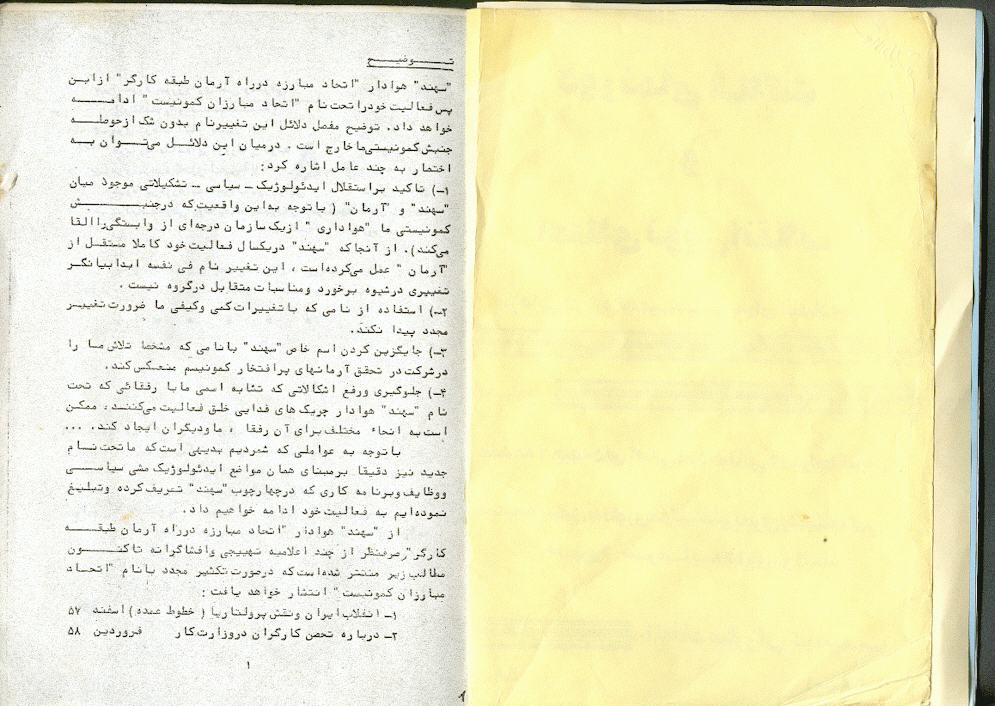 توضیح
"سهند" هوادار "اتحاد مبارزه درراه آرمان طبقه کارگر" ازاین
پس فعالیت خودرا تحت نام "اتحاد مبارزان کمونیست" ادامه
خواهد داد. توضیح مفصل دلائل این تغییرنام بدون شک ازحوصله
جنبش کمونیستی ما خارج است . درمیان این دلائل می‌توان به
اختصار به چند عامل اشاره کرد:
۱-) تاکید براستقلال ایدئولوژیک - سیاسی - تشکیلاتی موجود میان
"سهند" و "آرمان" ( باتوجه به‌این واقعیت‌که درجنبش
کمونیستی ما "هواداری" ازیک سازمان درجه‌ای از وابستگی‌را القا
می‌کند). از آنجاکه "سهند" دریکسال فعالیت خود کاملا مستقل از
"آرمان" عمل می‌کرده‌است ، این تغییر نام فی نفسه ابدا بیانگر
تغییری درشیوه برخورد ومناسبات متقابل درگروه نیست .
۲-) استفاده از نامی که باتغییرات کمی وکیفی ما ضرورت تغییر
مجدد پیدا نکند.
۳-) جایگزین کردن اسم خاص "سهند" بانامی که مشخصا تلاش ما را
درشرکت در تحقق آرمانهای پرافتخار کمونیسم منعکس کند.
۴-) جلوگیری ورفع اشکالاتی که تشابه اسمی مابا رفقائی که تحت
نام "سهند" هوادار چریک های فدایی خلق فعالیت می‌کنند، ممکن
است به انحاء مختلف برای آن رفقا ، ماودیگران ایجاد کند. ...
باتوجه به عواملی که شمردیم بدیهی است‌که ماتحت نام
جدید نیز دقیقا برمبنای همان مواضع ایدئولوژیک مشی سیاسی
ووظایف وبرنامه کاری که درچهارچوب "سهند" تعریف کرده وتبلیغ
نموده‌ایم به فعالیت خود ادامه خواهیم داد.
از "سهند" هوادار "اتحاد مبارزه درراه آرمان طبقه
کارگر" صرفنظر از چند اعلامیه تهییجی وافشاگرانه تاکنون
مطالب زیر منتشر شده‌است که درصورت تکثیر مجدد بانام "اتحاد
مبارزان کمونیست" انتشار خواهد یافت :
۱- انقلاب ایران ونقش پرولتاریا ( خطوط عمده ) اسفند ۵۷
۲- درباره تحصن کارگران دروزارت کار فروردین ۵۸
۱